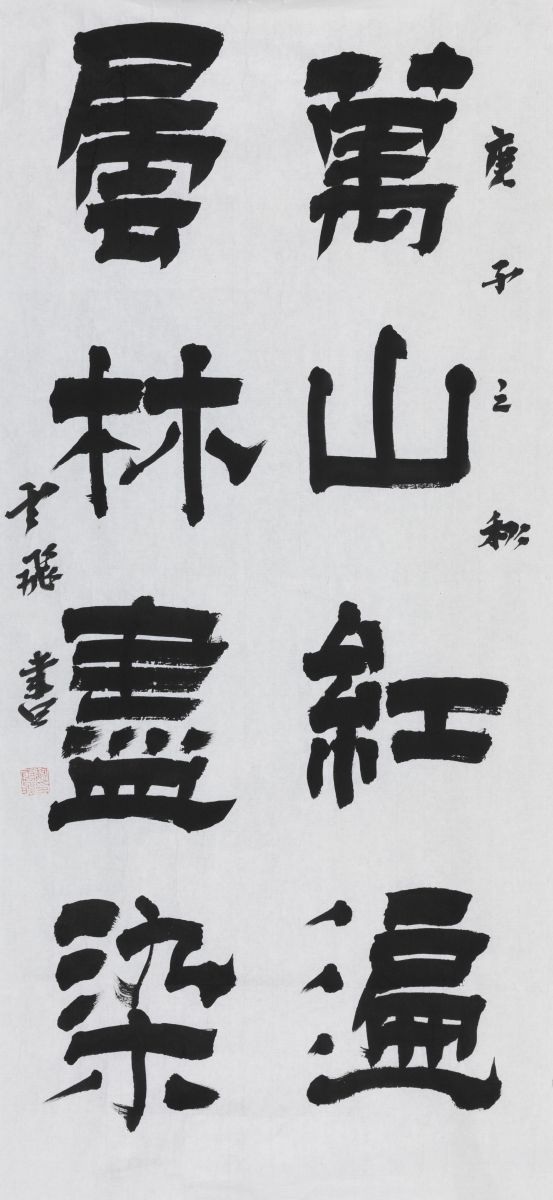 庚子之秋
萬山紅遍
層林盡染
云飛書